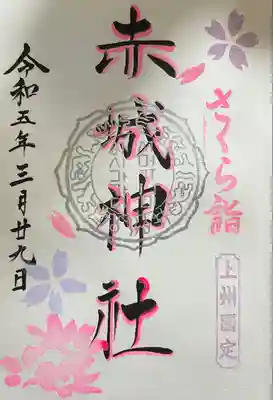 さくら詣
上州国定
赤城神社
令和五年三月廿九日